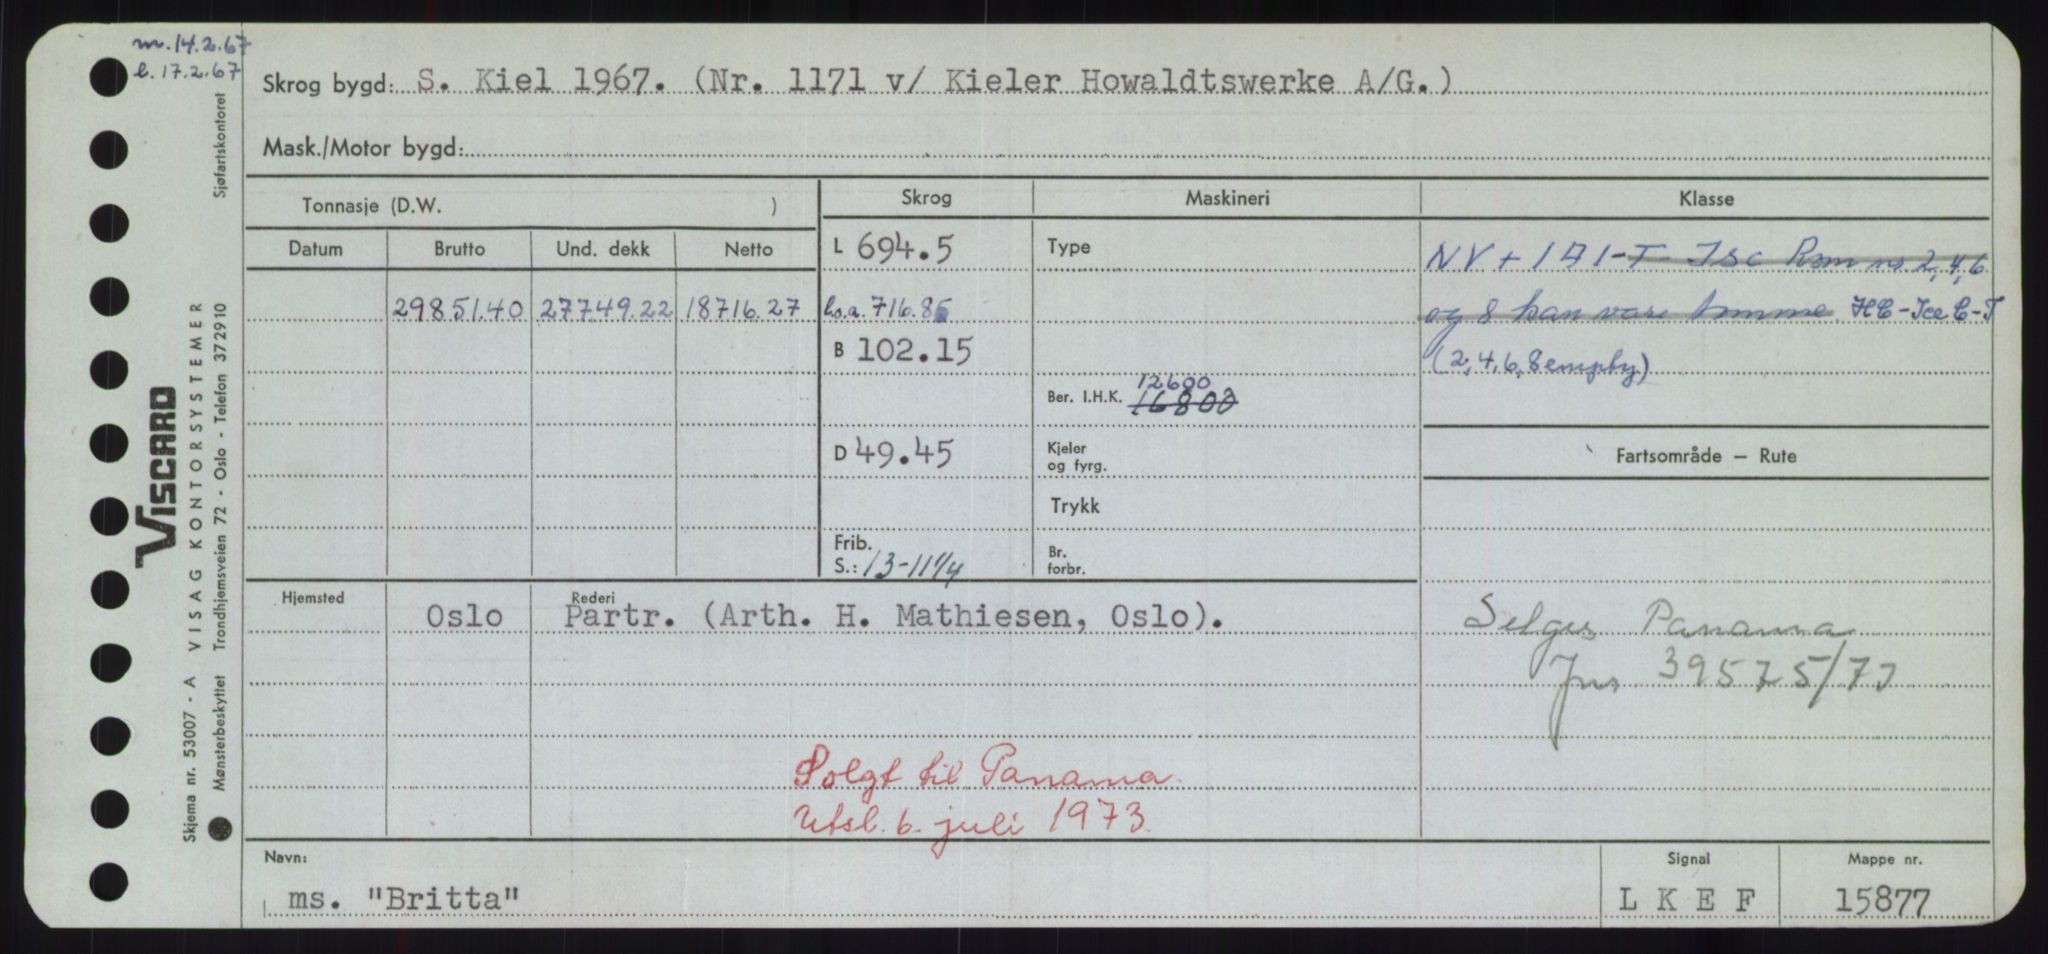 m. 14.2.67
l. 17.2.67
Skrog bygd: S. Kiel 1967. (Nr. 1171 v/ Kieler Howaldtswerke A/G.)
Mask./Motor bygd:
Tonnasje (D.W. )
Skrog Maskineri Klasse
Datum Brutto Und. dekk Netto
L 694.5
Type
NV + 1A1-T- Isc Rom nr. 2,4,6
29851.40 27749.22 18716.27
l.o.a. 716.86
og 8 kan være tomme. HC-Ice C-T
B 102.15
(2,4,6,8 empty)
12600
Ber. I.H.K. 16800
D 49.45
Kjeler og fyrg.
Fartsområde – Rute
Trykk
Frib.
S.: 13-11¼
Br. forbr.
Hjemsted Rederi
Oslo Partr. (Arth. H. Mathiesen, Oslo).
Selges Panama
Jnr 39575/73
Solgt til Panama
Utsl. 6. juli 1973
Navn: Signal Mappe nr.
ms. "Britta" LKEF 15877
Skjema nr. 53007 - A VISAG KONTORSYSTEMER
Mønsterbeskyttet Trondhjemsveien 72 - Oslo - Telefon 372910 Sjøfartskontoret
VISCARD